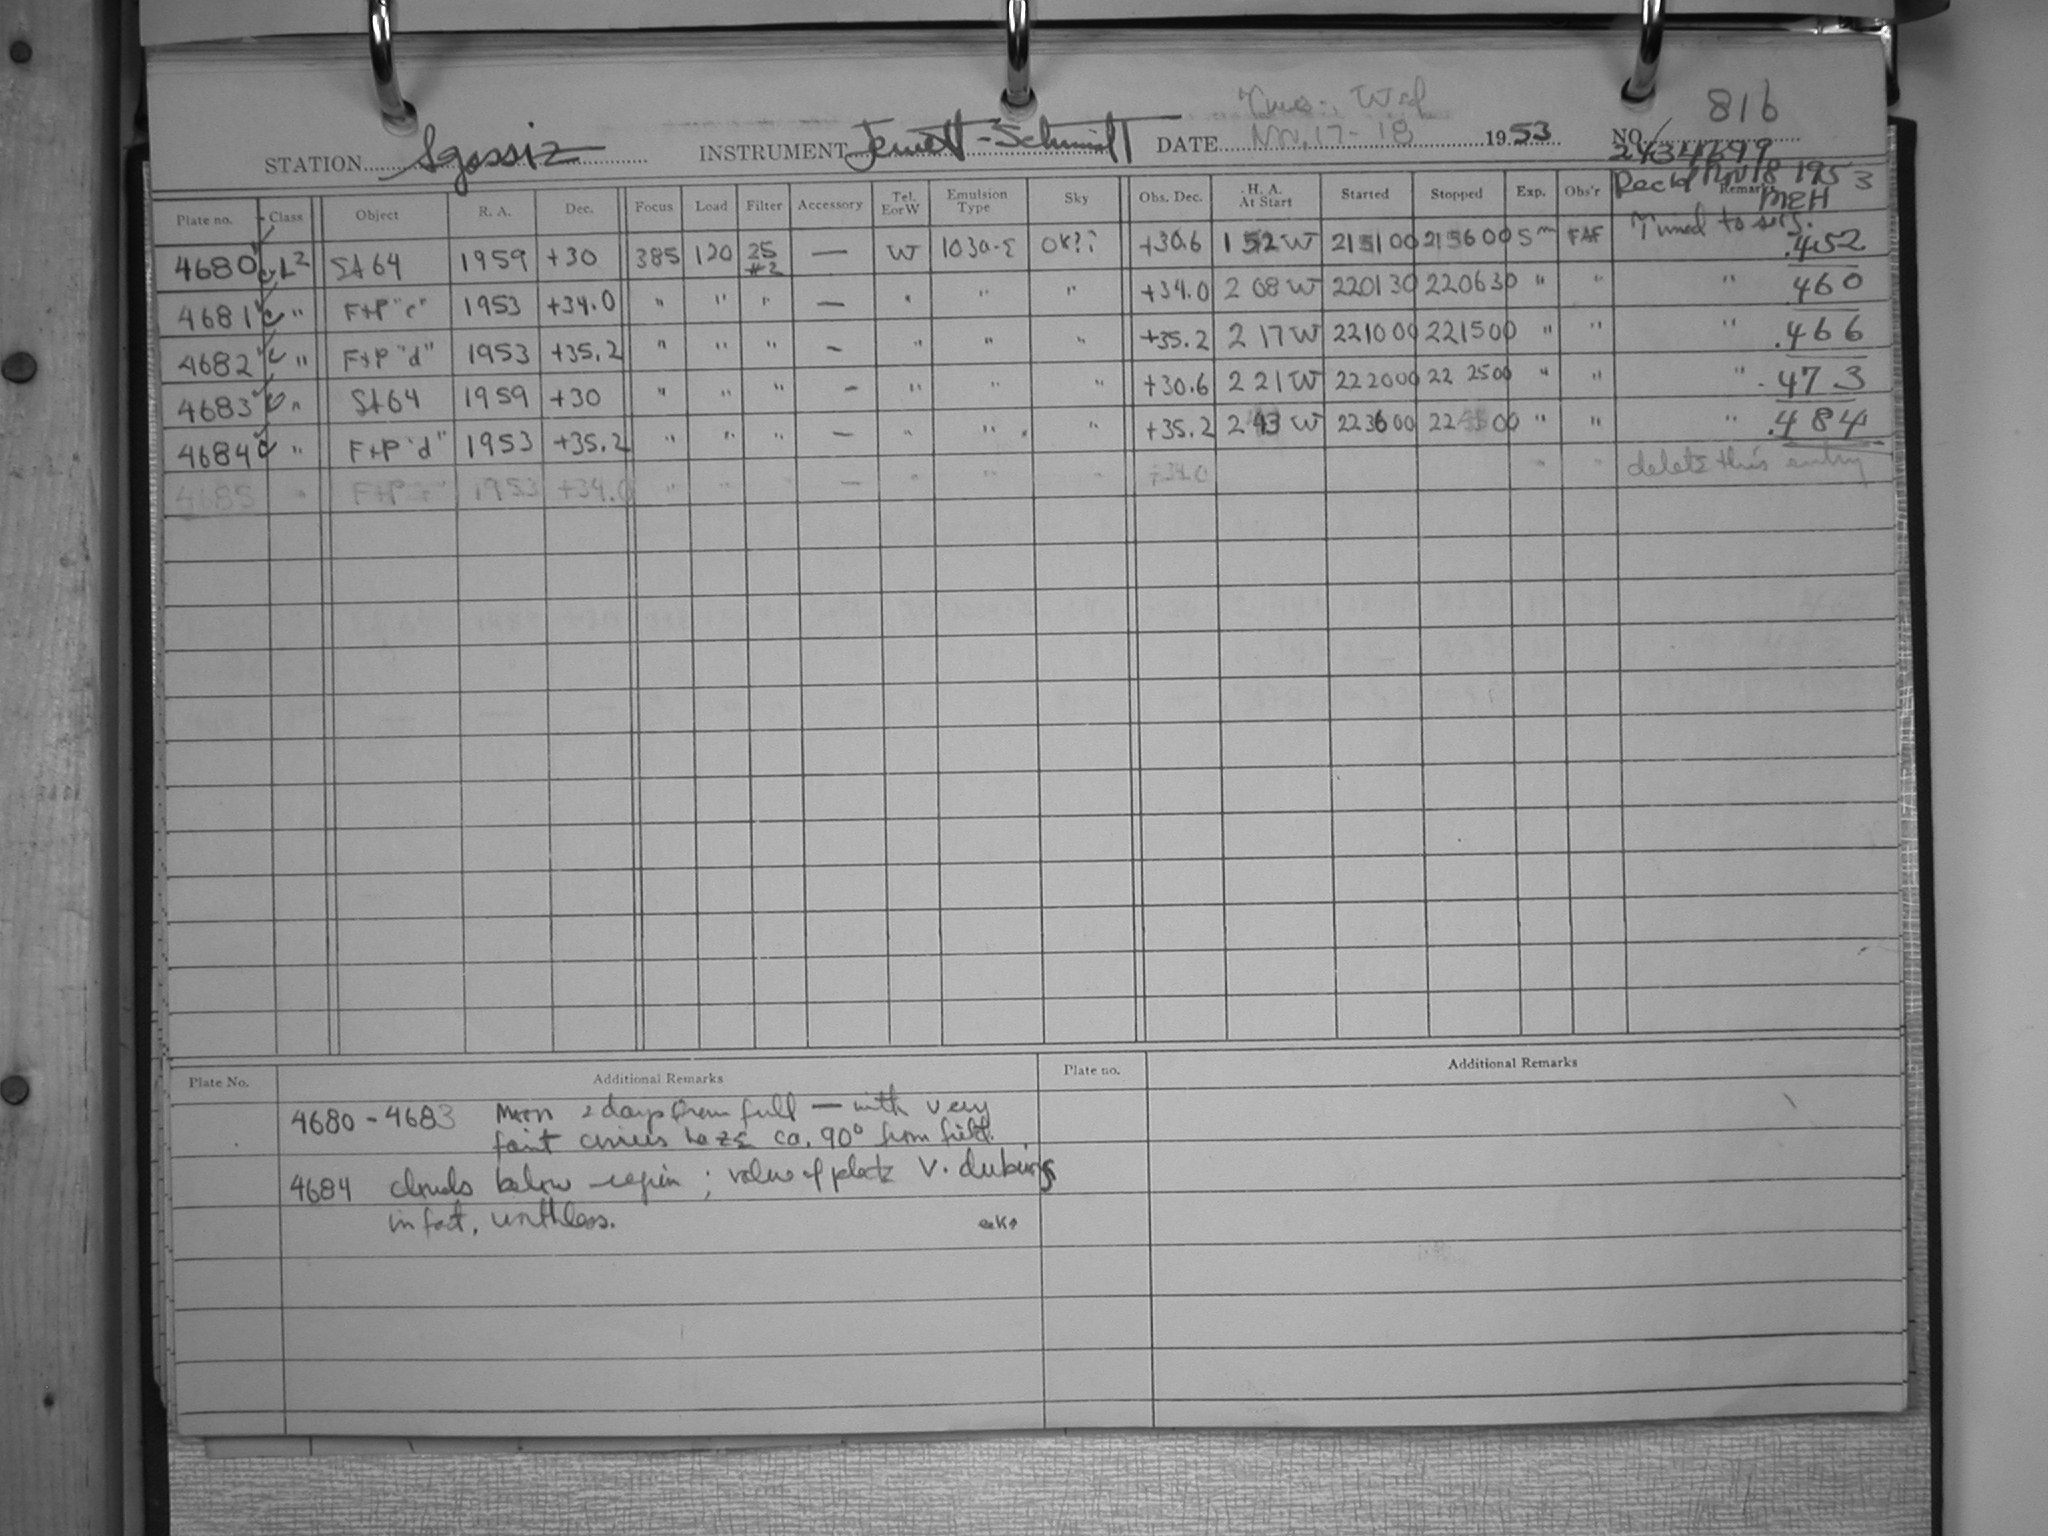 Tues. Wed 816
STATION Agassiz INSTRUMENT Jewett-Schmidt DATE Nov. 17-18 1953 NO.
2434699
Rec'd Nov 18 1953
MEH
Plate no. Class Object R. A. Dec. Focus Load Filter Accessory Tel. EorW Emulsion Type Sky Obs. Dec. H. A. At Start Started Stopped Exp. Obs'r Remarks
Timed to sec.
4680 L2 SA 64 1959 +30 385 120 25 #2 — W 103a-E OK?? +30.6 1 52 W 215100 215600 5m FAF .452
4681 " F+P "c" 1953 +34.0 " " " — " " " +34.0 2 08 W 220130 220630 " " " 460
4682 " F+P "d" 1953 +35.2 " " " — " " " +35.2 2 17 W 221000 221500 " " " .466
4683 " SA 64 1959 +30 " " " — " " " +30.6 2 21 W 222000 22 2500 " " " .473
4684 " F+P "d" 1953 +35.2 " " " — " " " +35.2 2 43 W 223600 22 00 " " " .484
4685 " F+P 1953 +34.0 " " — " " " +34.0 " " delete this entry
Plate No. Additional Remarks Plate no. Additional Remarks
4680 - 4683 Moon 2 days from full — with very
faint cirrus haze ca. 90° from field.
4684 clouds below region; value of plate v. dubious
in fact, worthless.